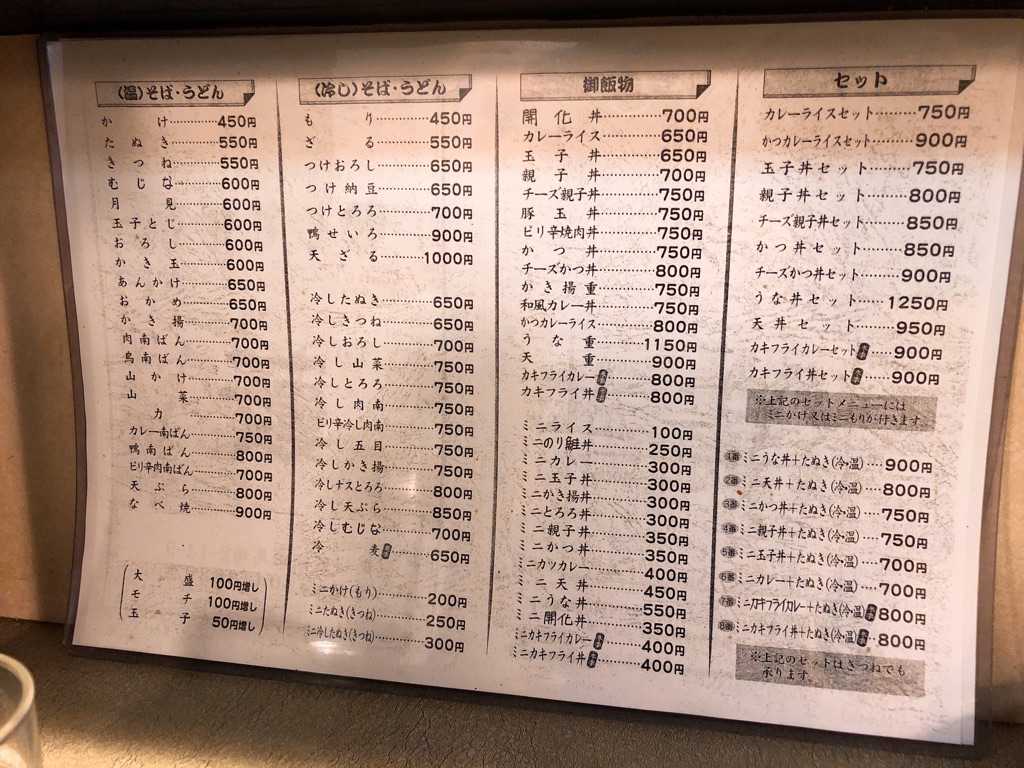 (温)そば・うどん
かけ…………450円
たぬき…………550円
きつね…………550円
むじな…………600円
月見…………600円
玉子とじ…………600円
おろし…………600円
かき玉…………600円
あんかけ…………650円
おかめ…………650円
かき揚…………700円
肉南ばん…………700円
鳥南ばん…………700円
山かけ…………700円
山菜…………700円
力…………700円
カレー南ばん…………750円
鴨南ばん…………800円
ピリ辛肉南ばん…………700円
天ぷら…………800円
なべ焼…………900円
大盛 100円増し
モチ 100円増し
玉子 50円増し
(冷し)そば・うどん
もり…………450円
ざる…………550円
つけおろし…………650円
つけ納豆…………650円
つけとろろ…………700円
鴨せいろ…………900円
天ざる…………1000円
冷したぬき…………650円
冷しきつね…………650円
冷しおろし…………700円
冷し山菜…………750円
冷しとろろ…………750円
冷し肉南…………750円
ピリ辛冷し肉南…………750円
冷し五目…………750円
冷しかき揚…………750円
冷しナスとろろ…………800円
冷し天ぷら…………850円
冷しむじな…………700円
冷麦…………650円
ミニかけ(もり)…………200円
ミニたぬき(きつね)…………250円
ミニ冷したぬき(きつね)…………300円
御飯物
開化丼…………700円
カレーライス…………650円
玉子丼…………650円
親子丼…………700円
チーズ親子丼…………750円
豚玉丼…………750円
ピリ辛焼肉丼…………750円
かつ丼…………750円
チーズかつ丼…………800円
かき揚重…………750円
和風カレー丼…………750円
かつカレーライス…………800円
うな重…………1150円
天重…………900円
カキフライカレー…………800円
カキフライ丼…………800円
ミニライス…………100円
ミニのり鮭丼…………250円
ミニカレー…………300円
ミニ玉子丼…………300円
ミニかき揚丼…………300円
ミニとろろ丼…………300円
ミニ親子丼…………350円
ミニかつ丼…………350円
ミニカツカレー…………400円
ミニ天丼…………450円
ミニうな丼…………550円
ミニ開化丼…………350円
ミニカキフライカレー…………400円
ミニカキフライ丼…………400円
セット
カレーライスセット…………750円
かつカレーライスセット…………900円
玉子丼セット…………750円
親子丼セット…………800円
チーズ親子丼セット…………850円
かつ丼セット…………850円
チーズかつ丼セット…………900円
うな丼セット…………1250円
天丼セット…………950円
カキフライカレーセット……900円
カキフライ丼セット……900円
※上記のセットメニューには
ミニかけ又はミニもりが付きます。
1番 ミニうな丼+たぬき(冷・温)…900円
2番 ミニ天丼+たぬき(冷・温)…800円
3番 ミニかつ丼+たぬき(冷・温)…750円
4番 ミニ親子丼+たぬき(冷・温)…750円
5番 ミニ玉子丼+たぬき(冷・温)…700円
6番 ミニカレー+たぬき(冷・温)…700円
7番 ミニカキフライカレー+たぬき(冷・温)800円
8番 ミニカキフライ丼+たぬき(冷・温)…800円
※上記のセットはきつねでも
承ります。